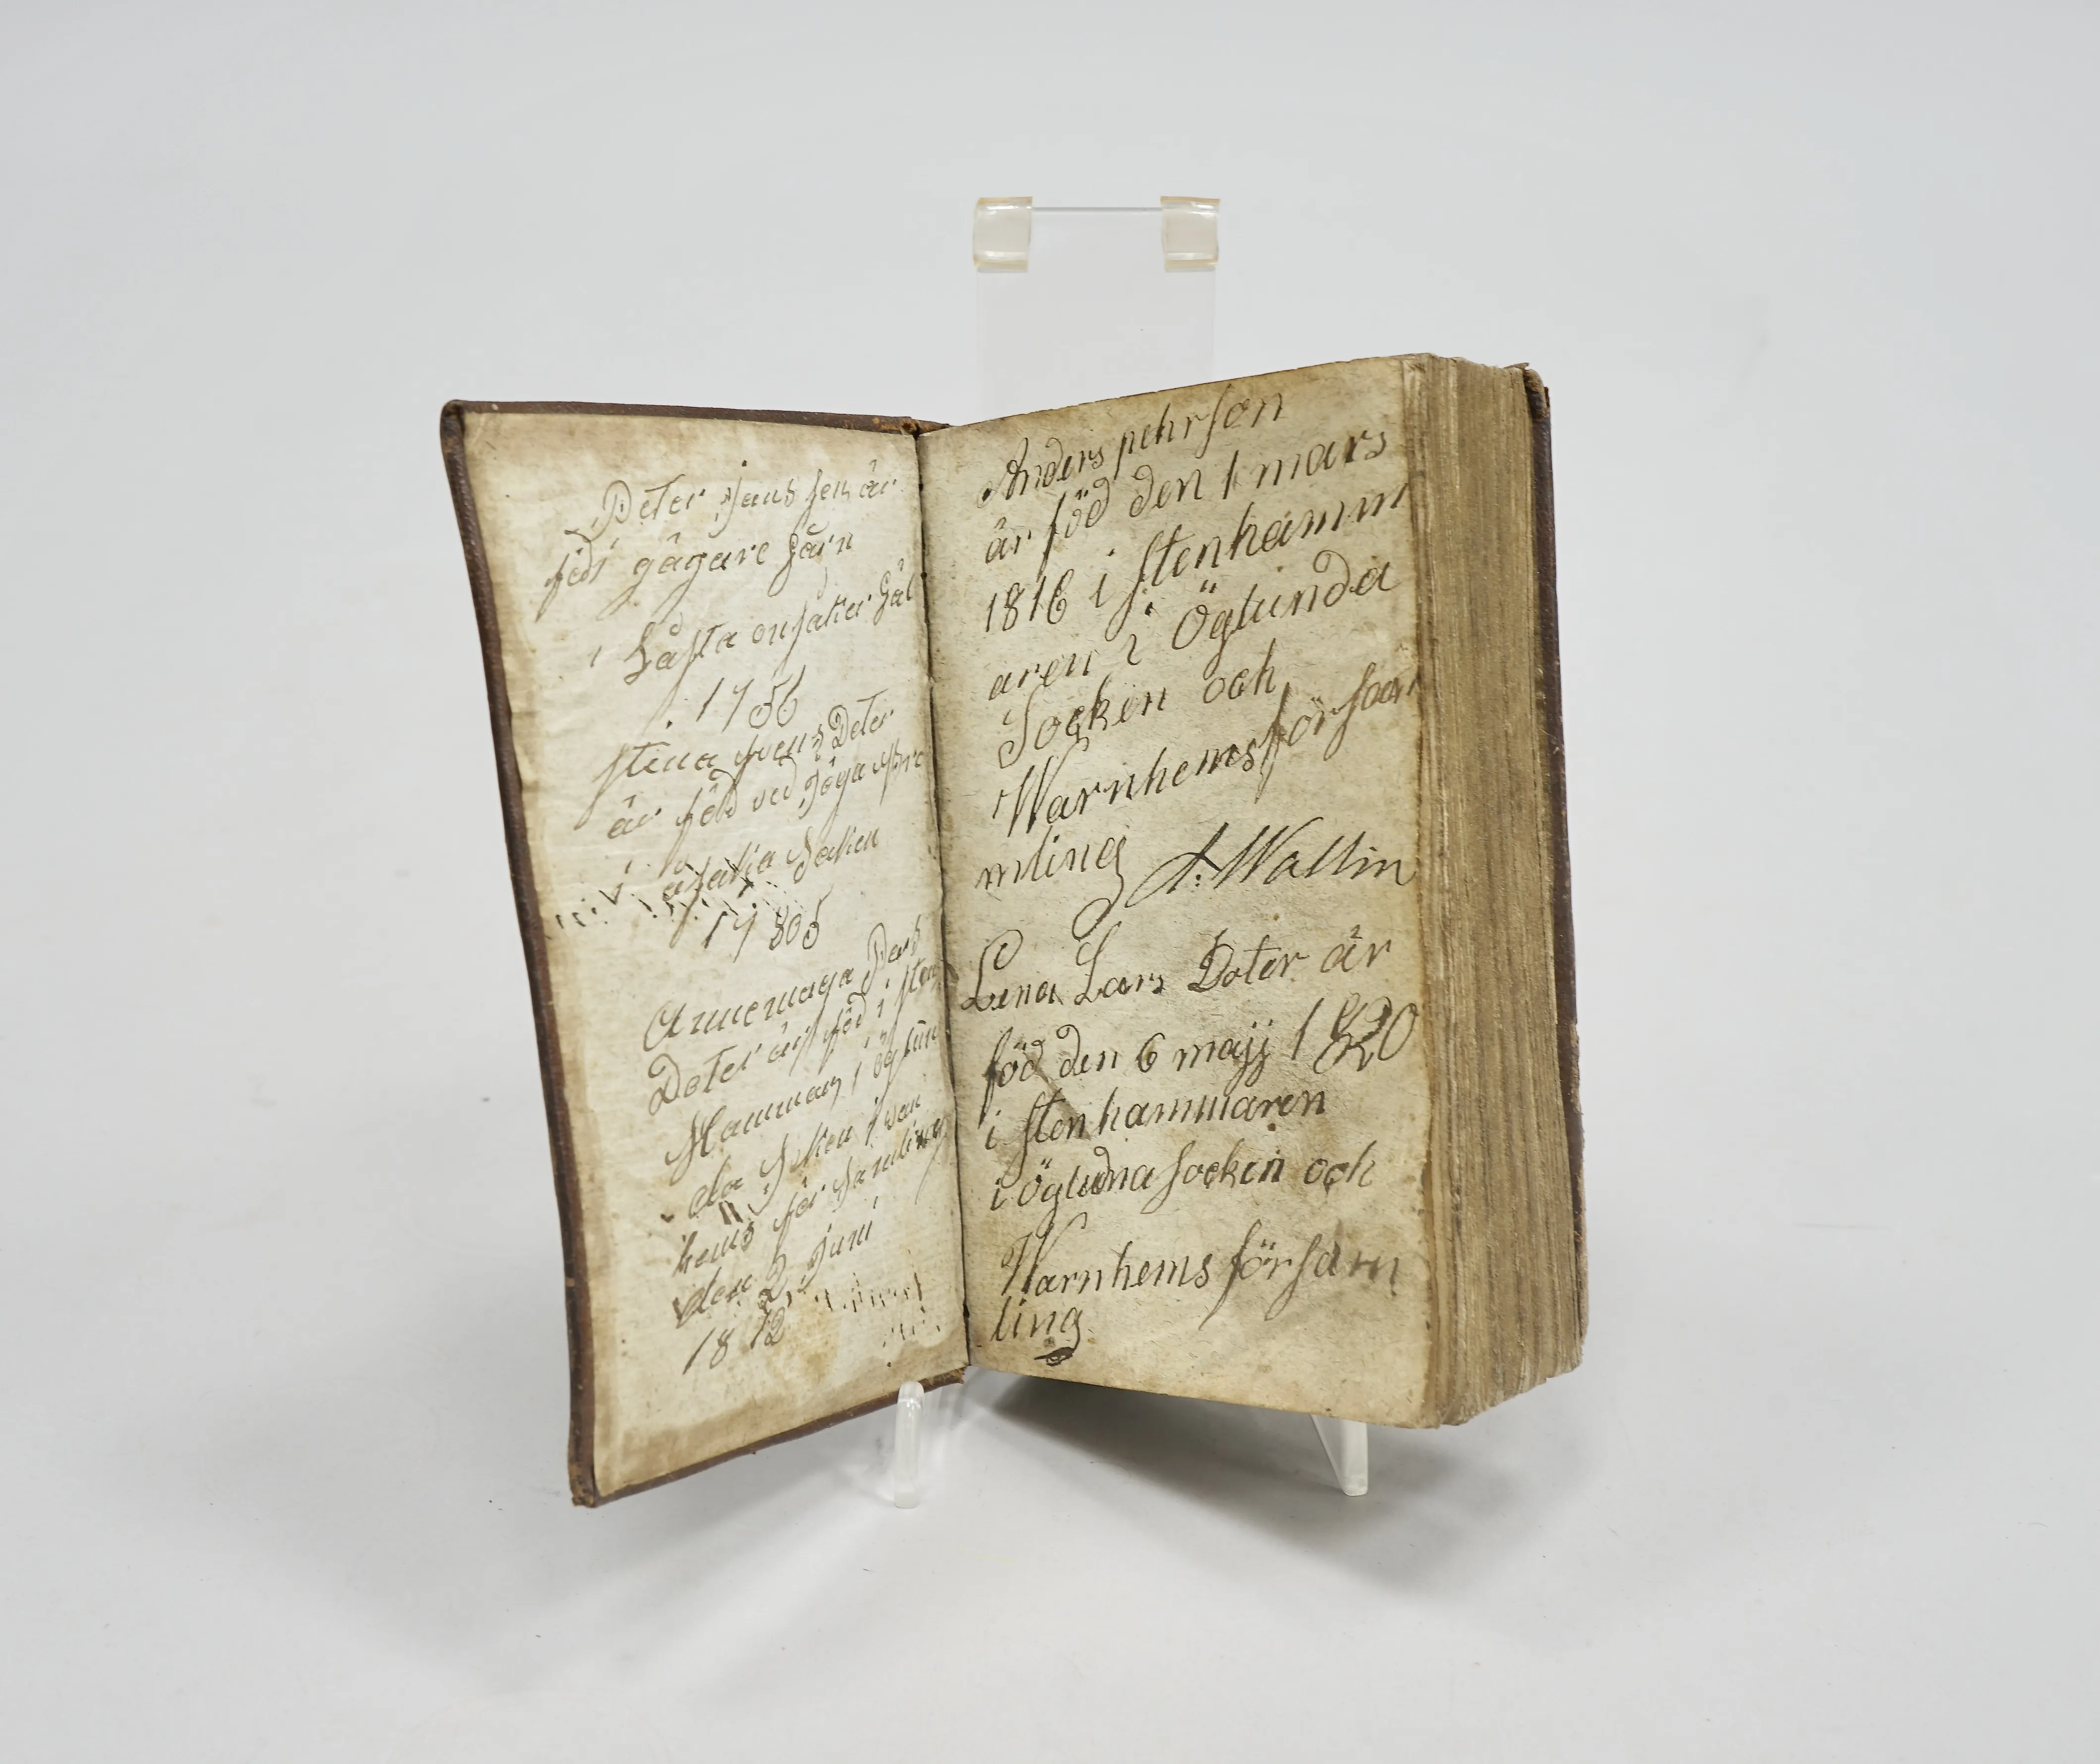 Peter Jans son är
född i gågare gårn
i
. 1756
stina svens Doter
är född ved
i Saken
17805
Annemaga Pers
Doter är föd i sten
Hammar i öglun
da Soken i van
hems för samling
den 2 juni
1812
Anders pehrson
är föd den 1 mars
1816 i stenhamm
aren i Öglunda
Socken och
Warnhems försam
mling A: Wallin
Lena Lars Doter är
föd den 6 majj 1820
i stenhammaren
i Ögludna socken och
Warnhems försam
ling